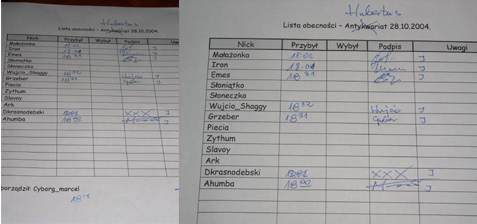 Hubertus
Lista obecności – Antykwariat 28.10.2004.
Nick Przybył Wybył Podpis Uwagi
Małażonka 18:02 J
Iron J
Emes 18 31 J
Słoniątko
Słoneczko
Wujcio_Shaggy 18 32 J
Grzeber 18 31 J
Piecia
Zythum
Slavoy
Ark
Dkrasnodebski XXX J
Ahumba 18 00 J
Hubertus
Lista obecności – Antykwariat 28.10.2004.
Nick Przybył Wybył Podpis Uwagi
Małażonka 18:02 J
Iron J
Emes 18 31 J
Słoniątko
Słoneczko
Wujcio_Shaggy 18 32 J
Grzeber 18 31 J
Piecia
Zythum
Slavoy
Ark
Dkrasnodebski XXX J
Ahumba 18 00 J
porządził: Cyborg_marcel